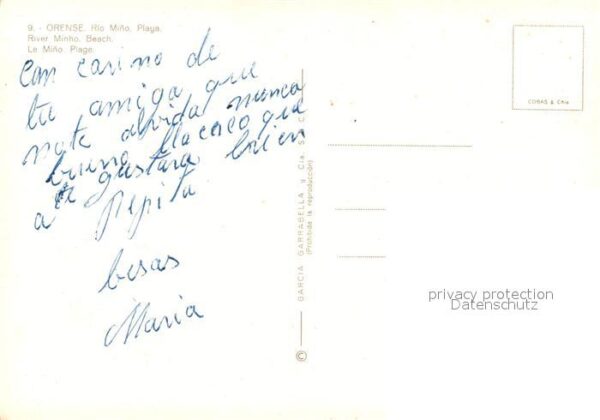 9. - ORENSE. Río Miño. Playa.
River Minho. Beach.
Le Miño. Plage.
Con carino de
tu amiga que
note olvida nunca
bueno que
te gustara bien
a Pepita
besas
Maria
© GARCIA GARRABELLA y Cia.
(Prohibida la reproducción)
COBAS & Cía
privacy protection
Datenschutz